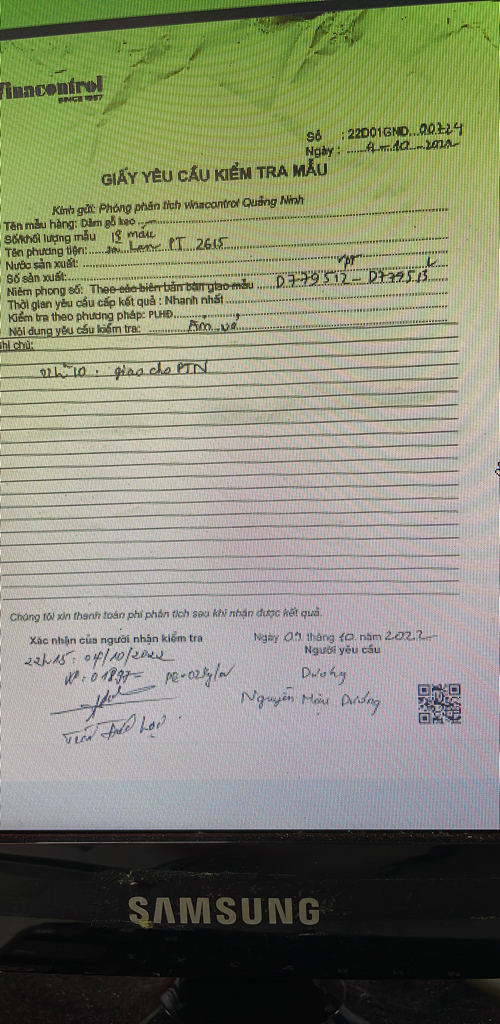 Vinacontrol
SINCE 1957
Số : 22D01GND...00224
Ngày : ...4 - 10 - 2022
GIẤY YÊU CẦU KIỂM TRA MẪU
Kính gửi: Phòng phân tích vinacontrol Quảng Ninh
Tên mẫu hàng: Dăm gỗ keo
Số/khối lượng mẫu 18 mẫu
Tên phương tiện: Sà Lan PT 2615
Nước sản xuất:
Số sản xuất:
Niêm phong số: Theo các biên bản bàn giao mẫu D779512 - D779513
Thời gian yêu cầu cấp kết quả : Nhanh nhất
Kiểm tra theo phương pháp: PLHĐ
Nội dung yêu cầu kiểm tra: Ẩm, vỏ
Ghi chú:
22h10 . giao cho PTN
Chúng tôi xin thanh toán phí phân tích sau khi nhận được kết quả.
Xác nhận của người nhận kiểm tra
Ngày 04 tháng 10 năm 2022
Người yêu cầu
22h15 : 04/10/2022
Dương
Nguyễn Dương
SAMSUNG